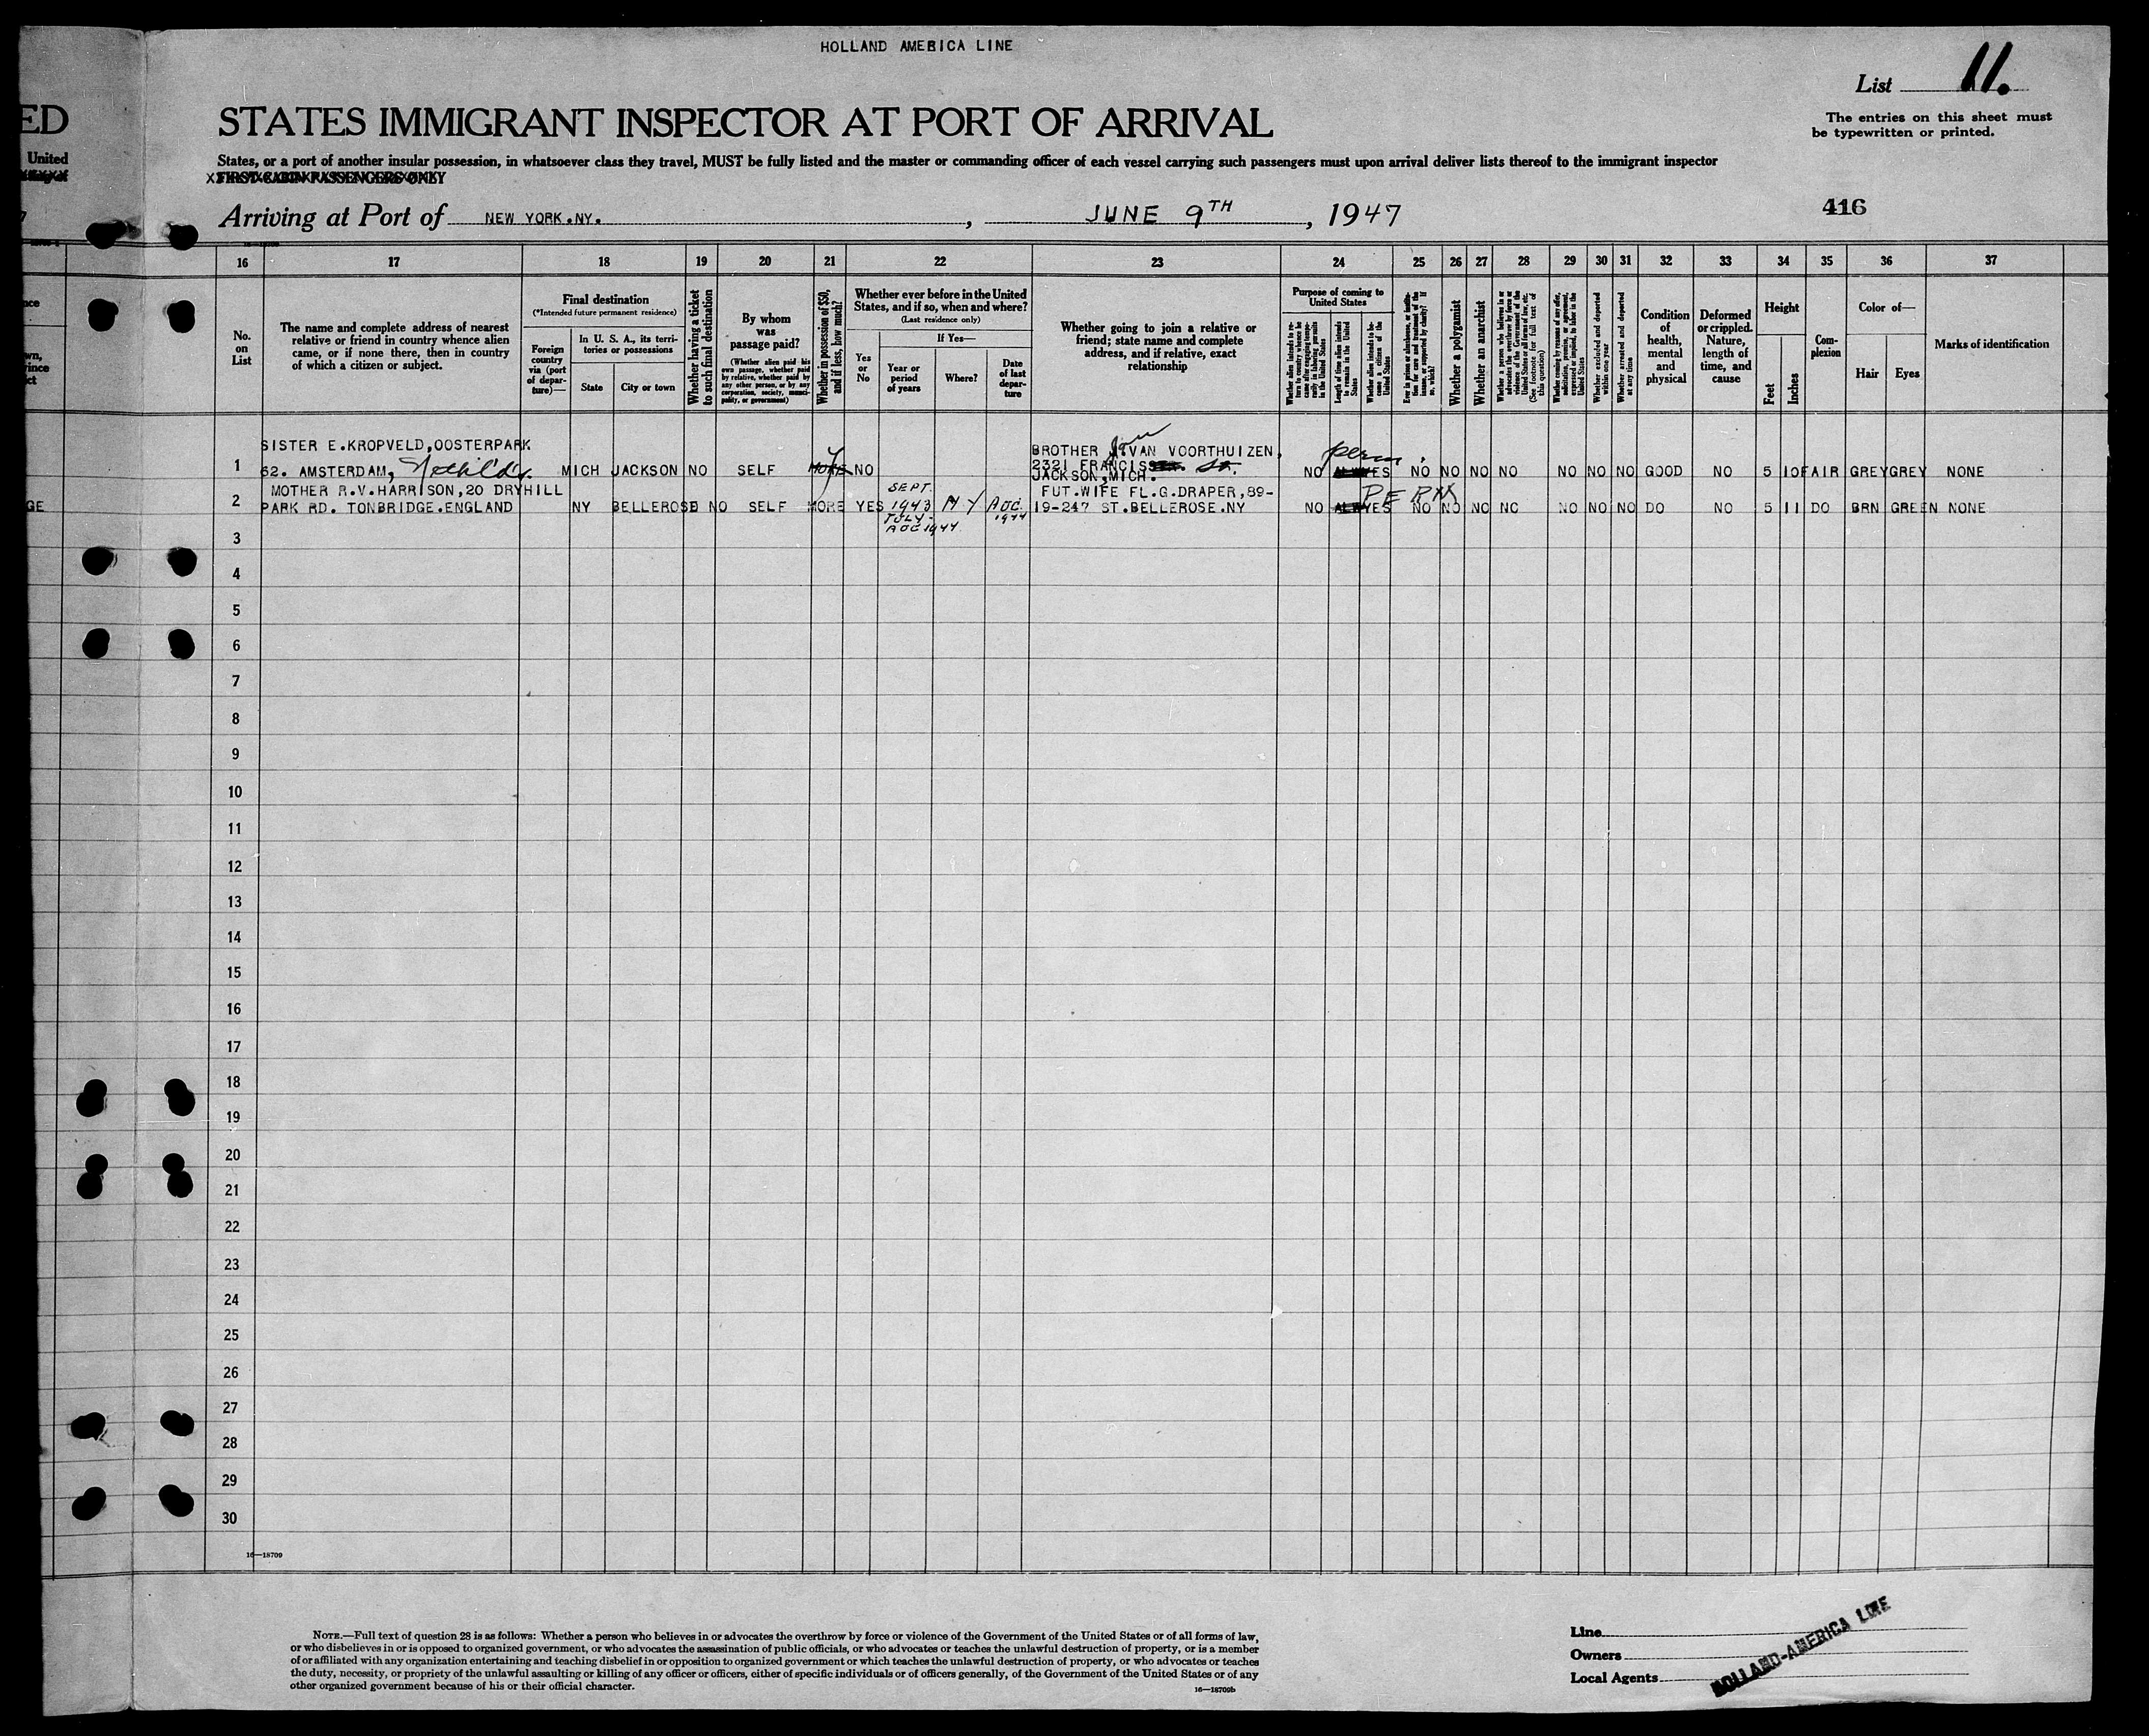 HOLLAND AMERICA LINE
List 11.
ED
STATES IMMIGRANT INSPECTOR AT PORT OF ARRIVAL
The entries on this sheet must
be typewritten or printed.
United
States, or a port of another insular possession, in whatsoever class they travel, MUST be fully listed and the master or commanding officer of each vessel carrying such passengers must upon arrival deliver lists thereof to the immigrant inspector
FIRST-CABIN PASSENGERS ONLY
Arriving at Port of NEW YORK.NY., JUNE 9TH, 1947
416
16 17 18 19 20 21 22 23 24 25 26 27 28 29 30 31 32 33 34 35 36 37
No.
on
List
The name and complete address of nearest
relative or friend in country whence alien
came, or if none there, then in country
of which a citizen or subject.
Final destination
(*Intended future permanent residence)
Foreign
country
via (port
of depar-
ture)—
In U. S. A., its terri-
tories or possessions
State
City or town
Whether having a ticket
to such final destination
By whom
was
passage paid?
(Whether alien paid his
own passage, whether paid
by relative, whether paid by
any other person, or by any
corporation, society, munici-
pality, or government)
Whether in possession of $50,
and if less, how much?
Whether ever before in the United
States, and if so, when and where?
(Last residence only)
Yes
or
No
If Yes—
Year or
period
of years
Where?
Date
of last
depar-
ture
Whether going to join a relative or
friend; state name and complete
address, and if relative, exact
relationship
Purpose of coming to
United States
Whether alien intends to re-
turn to country whence he
came after engaging tempo-
rarily in laboring pursuits
in the United States
Length of time alien intends
to remain in the United
States
Whether alien intends to be-
come a citizen of the
United States
Ever in prison or almshouse, or institu-
tion for care and treatment of the
insane, or supported by charity? If
so, which?
Whether a polygamist
Whether an anarchist
Whether a person who believes in or
advocates the overthrow by force or
violence of the Government of the
United States or all forms of law, etc.
(See footnote for full text of
this question)
Whether coming by reason of any offer,
solicitation, promise, or agreement,
expressed or implied, to labor in the
United States
Whether excluded and deported
within one year
Whether arrested and deported
at any time
Condition
of
health,
mental
and
physical
Deformed
or crippled.
Nature,
length of
time, and
cause
Height
Feet
Inches
Com-
plexion
Color of—
Hair
Eyes
Marks of identification
SISTER E.KROPVELD,OOSTERPARK BROTHER J.VAN VOORTHUIZEN,
2321 FRANCIS St. perm
1 62. AMSTERDAM, MICH JACKSON NO SELF MORE NO JACKSON,MICH. NO YES NO NO NO NO NO NO NO GOOD NO 5 10 FAIR GREY GREY NONE
MOTHER R.V.HARRISON,20 DRYHILL SEPT FUT.WIFE FL.G.DRAPER,89- PERM
2 PARK RD. TONBRIDGE.ENGLAND NY BELLEROSE NO SELF MORE YES 1943 NY AUG. 1944 19-247 ST.BELLEROSE.NY NO YES NO NO NO NO NO NO NO DO NO 5 11 DO BRN GREEN NONE
JULY-
AUG 1944
GE
3
4
5
6
7
8
9
10
11
12
13
14
15
16
17
18
19
20
21
22
23
24
25
26
27
28
29
30
16—18709
NOTE.—Full text of question 28 is as follows: Whether a person who believes in or advocates the overthrow by force or violence of the Government of the United States or of all forms of law,
or who disbelieves in or is opposed to organized government, or who advocates the assassination of public officials, or who advocates or teaches the unlawful destruction of property, or is a member
of or affiliated with any organization entertaining and teaching disbelief in or opposition to organized government or which teaches the unlawful destruction of property, or who advocates or teaches
the duty, necessity, or propriety of the unlawful assaulting or killing of any officer or officers, either of specific individuals or of officers generally, of the Government of the United States or of any
other organized government because of his or their official character.
16—18709b
Line
Owners
Local Agents
HOLLAND-AMERICA LINE